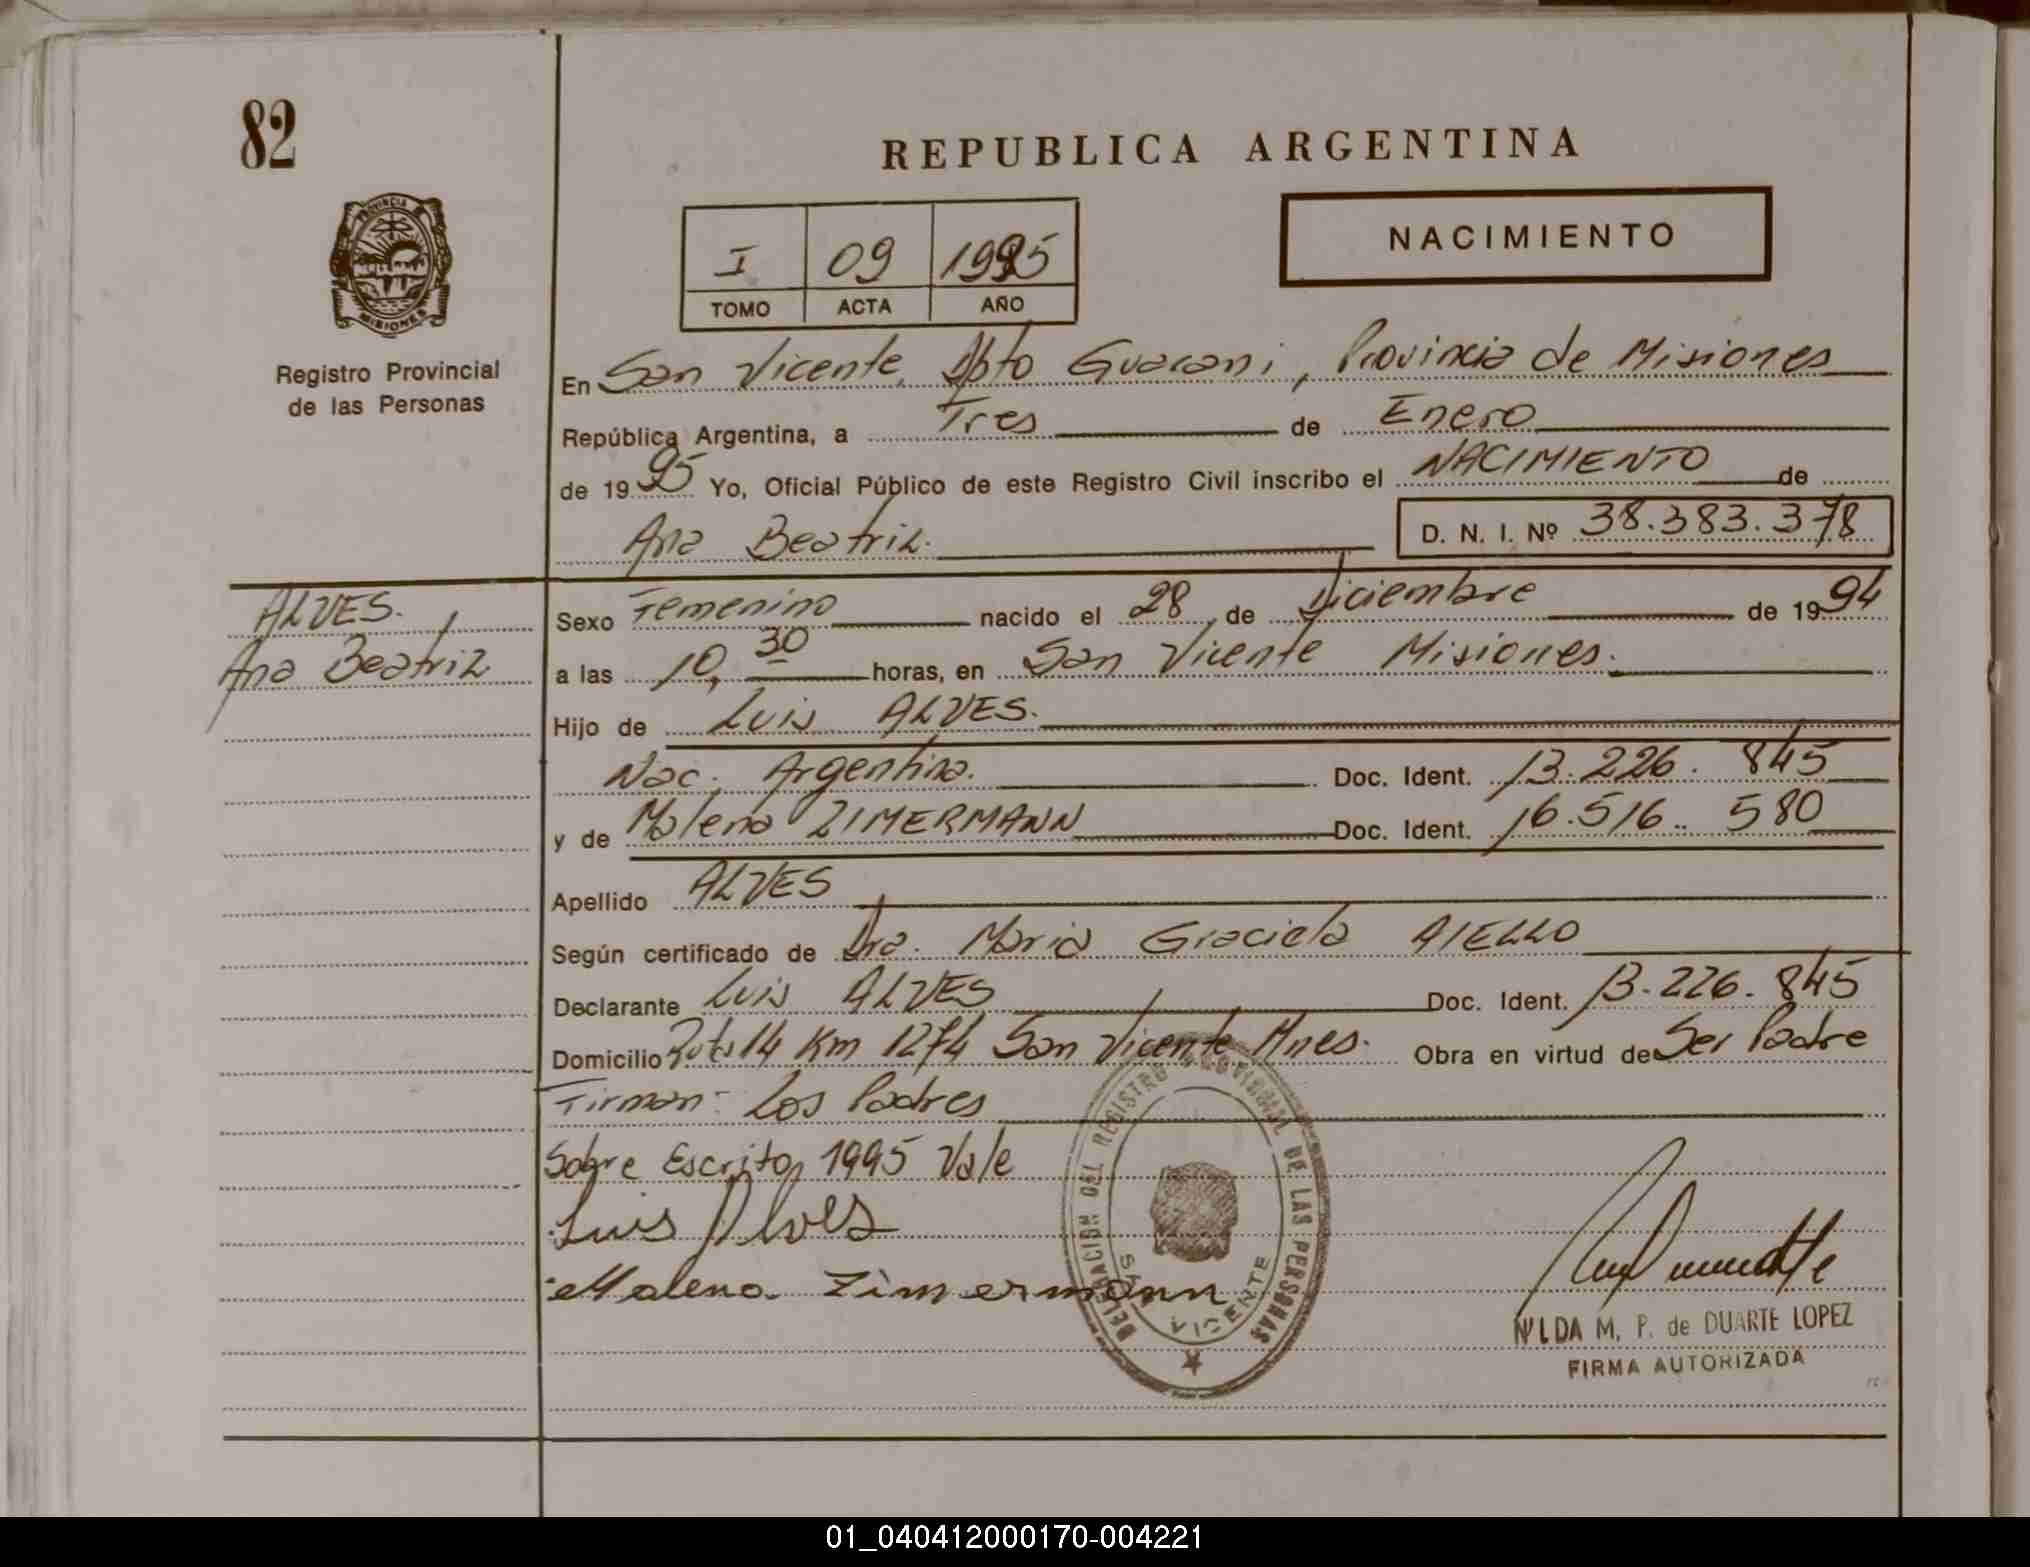 82
REPUBLICA ARGENTINA
PROVINCIA DE
MISIONES
Registro Provincial
de las Personas
I 09 1995
TOMO ACTA AÑO
NACIMIENTO
En San Vicente, Dpto Guarani, Provincia de Misiones
República Argentina, a Tres de Enero
de 1995 Yo, Oficial Público de este Registro Civil inscribo el NACIMIENTO de
Ana Beatriz. D. N. I. Nº 38.383.378
ALVES.
Ana Beatriz
Sexo Femenino nacido el 28 de Diciembre de 1994
a las 10,30 horas, en San Vicente Misiones.
Hijo de Luis ALVES.
Nac. Argentina. Doc. Ident. 13.226.845
y de Malena ZIMERMANN Doc. Ident. 16.516.580
Apellido ALVES
Según certificado de Dra. Maria Graciela AIELLO
Declarante Luis ALVES Doc. Ident. 13.226.845
Domicilio Ruta 14 Km 1274 San Vicente Mnes. Obra en virtud de Ser Padre
Firman: Los Padres
Sobre Escrito, 1995 Vale
Luis Alves
Malena Zimermann
DELEGACION DEL REGISTRO PROVINCIAL DE LAS PERSONAS
SAN VICENTE
NILDA M. P. de DUARTE LOPEZ
FIRMA AUTORIZADA
01_040412000170-004221